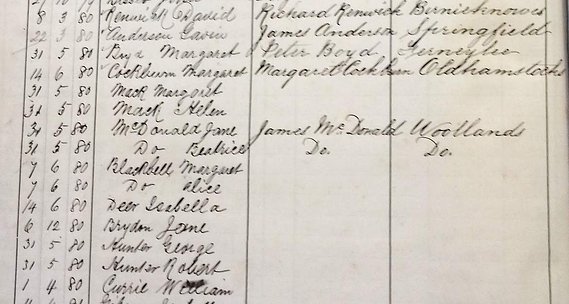 8 3 80 Renwick David Richard Renwick Birnieknowes
22 3 80 Anderson Gavin James Anderson Springfield
31 5 80 Boyd Margaret Peter Boyd
14 6 80 Cockburn Margaret Margaret Cockburn Oldhamstocks
31 5 80 Mack Margaret
31 5 80 Mack Helen
31 5 80 McDonald Jane James McDonald Woodlands
31 5 80 Do Beatrice Do. Do.
7 6 80 Blackbell Margaret
7 6 80 Do Alice
14 6 80 Deer Isabella
6 12 80 Brydon Jane
31 5 80 Hunter George
31 5 80 Hunter Robert
1 4 80 Currie William